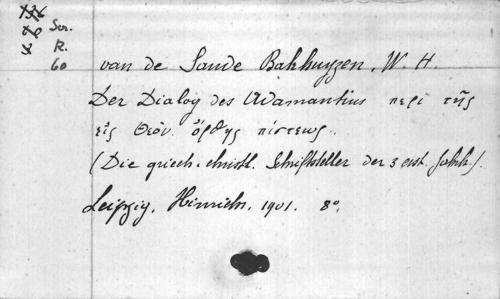 Scr.
R.
60
van de Sande Bakhuyzen, W. H.
Der Dialog des Adamantius περὶ τῆς
εἰς Θεὸν ὄρθης πίστεως.
(Die griech. christl. Schriftsteller der 3 erst. Jahrh.)
Leipzig, Hinrichs, 1901. 8°.